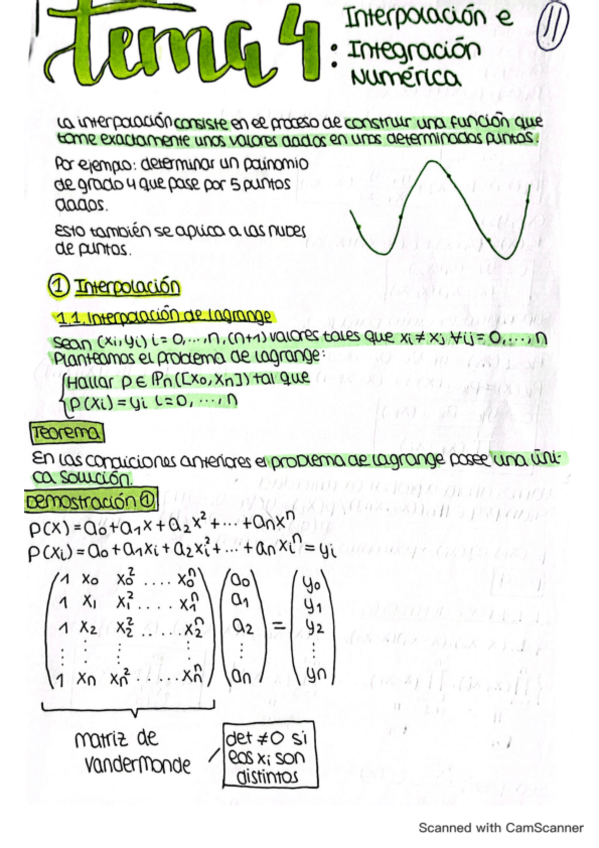 tema 4: Interpolación e
Integración
Numérica
11
La interpolación consiste en el proceso de construir una función que
tome exactamente unos valores dados en unos determinados puntos.
Por ejemplo: determinar un polinomio
de grado 4 que pase por 5 puntos
dados.
Esto también se aplica a las nubes
de puntos.
① Interpolación
1.1. Interpolación de Lagrange
Sean (xi, yi) i = 0, ..., n, (n+1) valores tales que xi ≠ xj ∀ij = 0, ..., n
Planteamos el problema de Lagrange:
{Hallar p ∈ ℙn([x0, xn]) tal que
p(xi) = yi i = 0, ..., n
Teorema
En las condiciones anteriores el problema de Lagrange posee una úni-
ca solución.
Demostración ①
p(x) = a0 + a1x + a2x² + ... + anxⁿ
p(xi) = a0 + a1xi + a2xi² + ... + anxiⁿ = yi
1 x0 x0² .... x0ⁿ a0 y0
1 x1 x1² .... x1ⁿ a1 y1
1 x2 x2² ..... x2ⁿ a2 = y2
⋮ ⋮ ⋮ ⋮ ⋮ ⋮
1 xn xn² ..... xnⁿ an yn
matriz de
Vandermonde
det ≠ 0 si
los xi son
distintos
Scanned with CamScanner